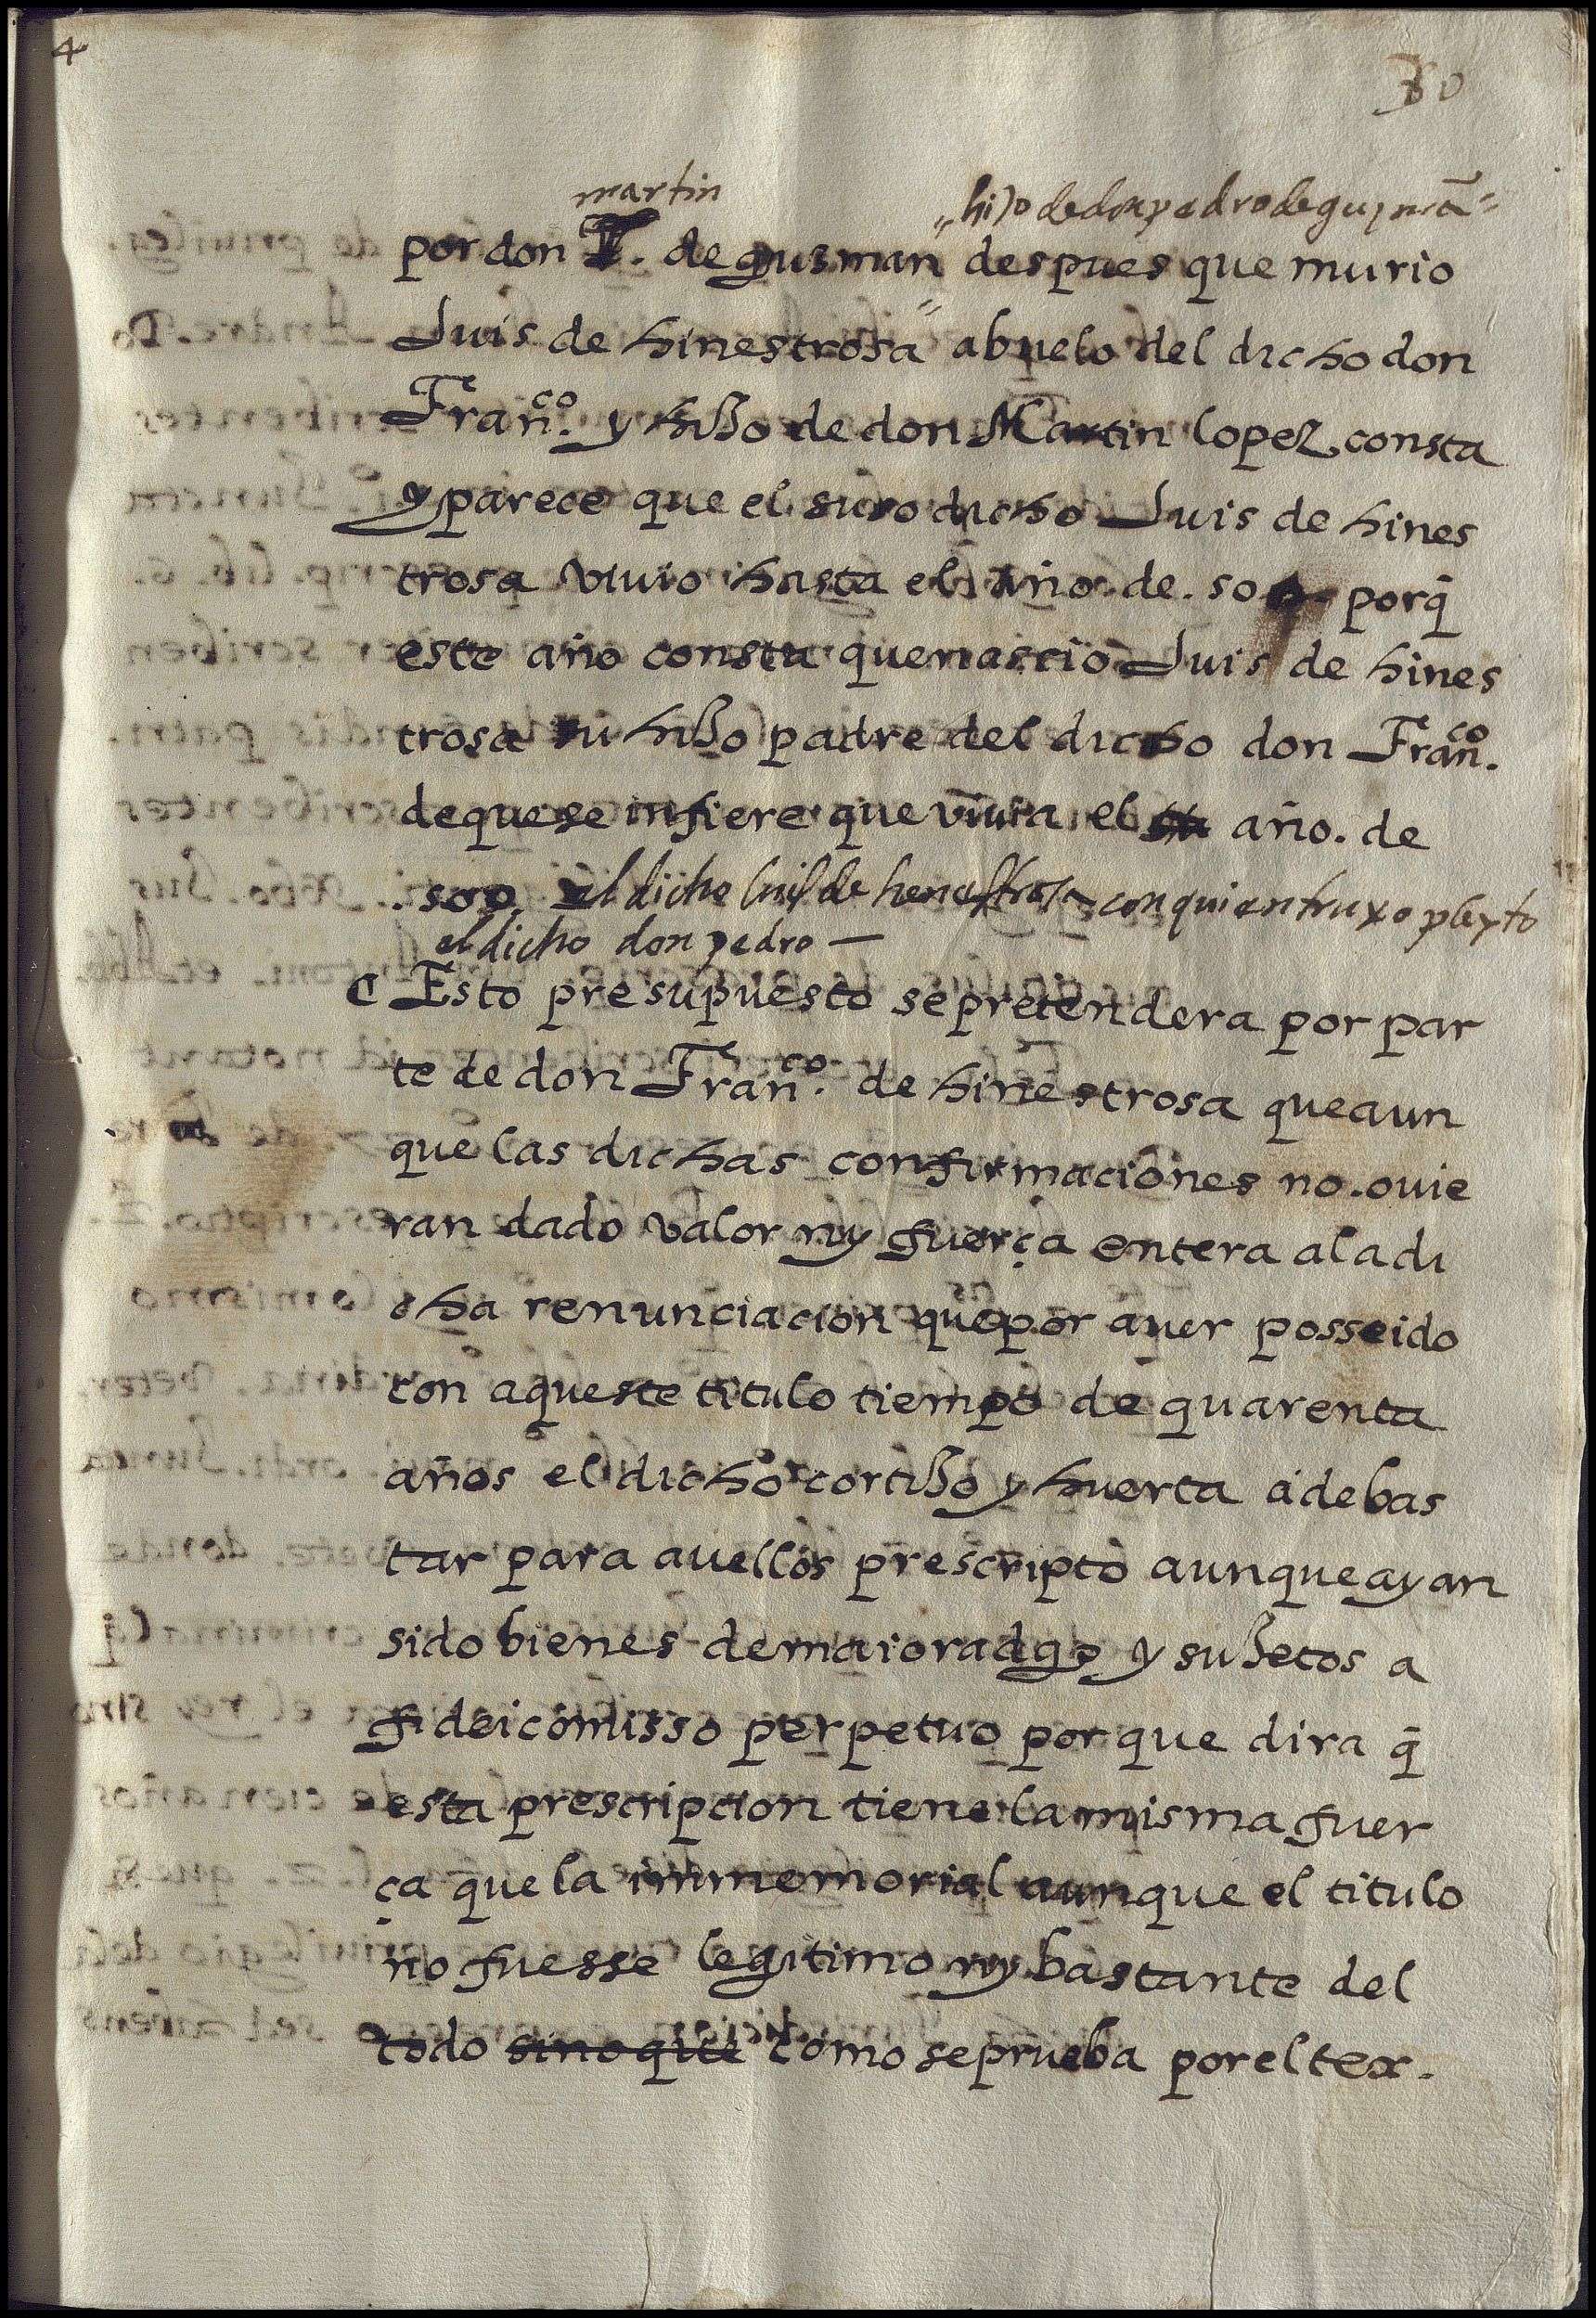 4
80
martin
"hijo de don pedro de guzmā"
por don de gusman" despues que murio
Luis de hinestrosa" abuelo del dicho don
Franco. y hijo de don Martin lopez consta
y parece que el suso dicho Luis de hines
trosa viuio hasta el año de . porq̄
este año consta que nascio Luis de hines
trosa su hijo padre del dicho don Franco.
de que se infiere que viuia el año. de
.500. el dicho luis de henestrosa con quien truxo pleyto
el dicho don pedro —
C Esto presupuesto se pretendera por par
te de don Franco. de hinestrosa que aun
que las dichas confirmaciones no. ouie
ran dado valor ny fuerça entera a la di
cha renunciacion que por auer posseido
con aqueste titulo tiempo de quarenta
años el dicho cortijo y huerta a de bas
tar para auellos prescripto aunque ayan
sido bienes de maioradgo y sujetos a
fideicomisso perpetuo por que dira q̄
esta prescripcion tiene la misma fuer
ça que la immemorial aunque el titulo
no fuesse legitimo ny bastante del
todo sino que como se prueba por el tex.